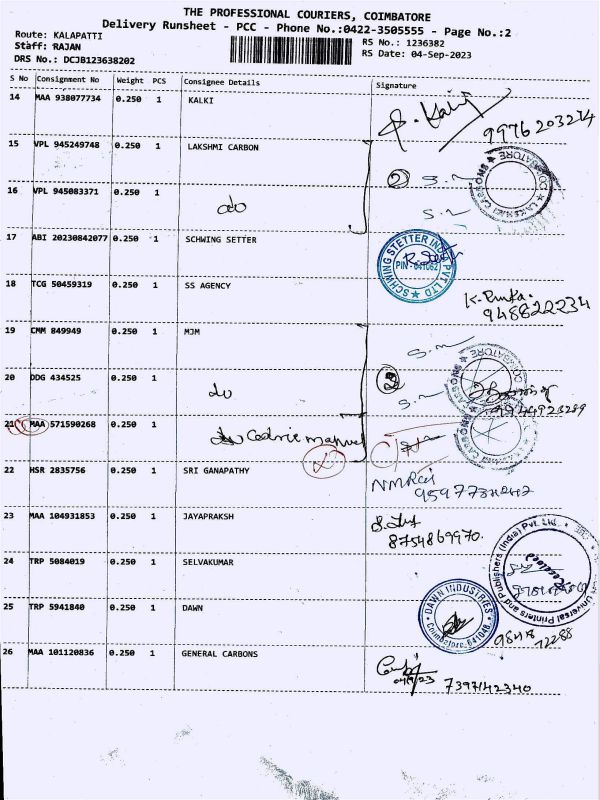 THE PROFESSIONAL COURIERS, COIMBATORE
Delivery Runsheet - PCC - Phone No.:0422-3505555 - Page No.:2
Route: KALAPATTI
Staff: RAJAN
DRS No.: DCJB123638202
RS No.: 1236382
RS Date: 04-Sep-2023
S No Consignment No Weight PCS Consignee Details Signature
14 MAA 938077734 0.250 1 KALKI
9976203274
15 VPL 945249748 0.250 1 LAKSHMI CARBON
16 VPL 945083371 0.250 1 do
17 ABI 20230842077 0.250 1 SCHWING SETTER
SCHWING STETTER INDIA PVT LTD
PIN - 641062
18 TCG 50459319 0.250 1 SS AGENCY
948822234
19 CMM 849949 0.250 1 MJM
20 DDG 434525 0.250 1 do
9944923289
21 MAA 571590268 0.250 1 do Cedric manuel
22 HSR 2835756 0.250 1 SRI GANAPATHY
NMRaj
23 MAA 104931853 0.250 1 JAYAPRAKSH
8754869970.
24 TRP 5084019 0.250 1 SELVAKUMAR
Universal Printers and Publishers (India) Pvt. Ltd.
25 TRP 5941840 0.250 1 DAWN
DAWN INDUSTRIES
Coimbatore-641048
72288
26 MAA 101120836 0.250 1 GENERAL CARBONS
04/9/23 7397142340